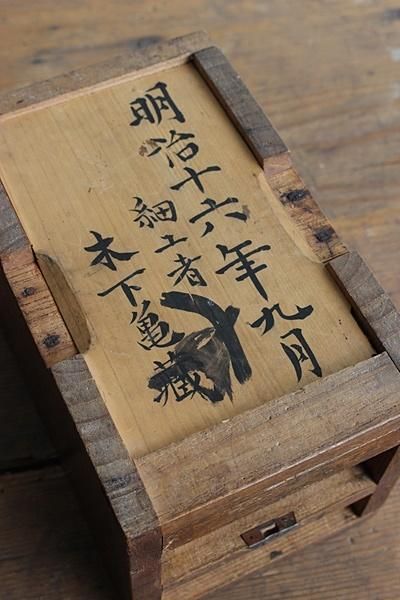 明治十六年九月
細工者
木下亀藏